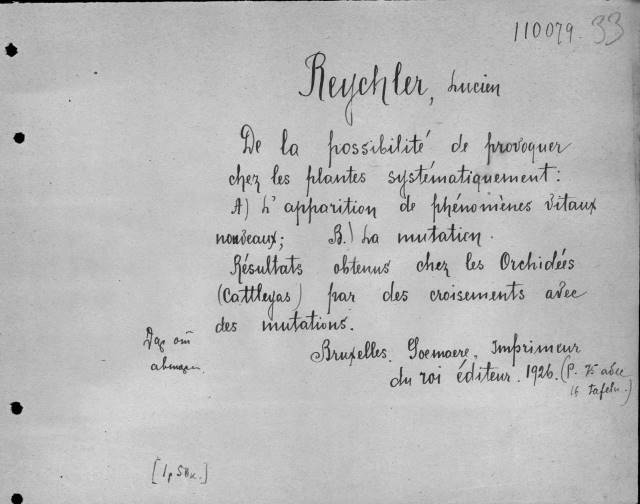 110079. 33
Reychler, Lucien
De la possibilité de provoquer
chez les plantes systématiquement:
A) L'apparition de phénomènes vitaux
nouveaux; B.) La mutation.
Résultats obtenus chez les Orchidées
(Cattleyas) par des croisements avec
des mutations.
Bruxelles. Goemaere, Imprimeur
du roi éditeur. 1926. (P. 75 avec
16 tafeln.)